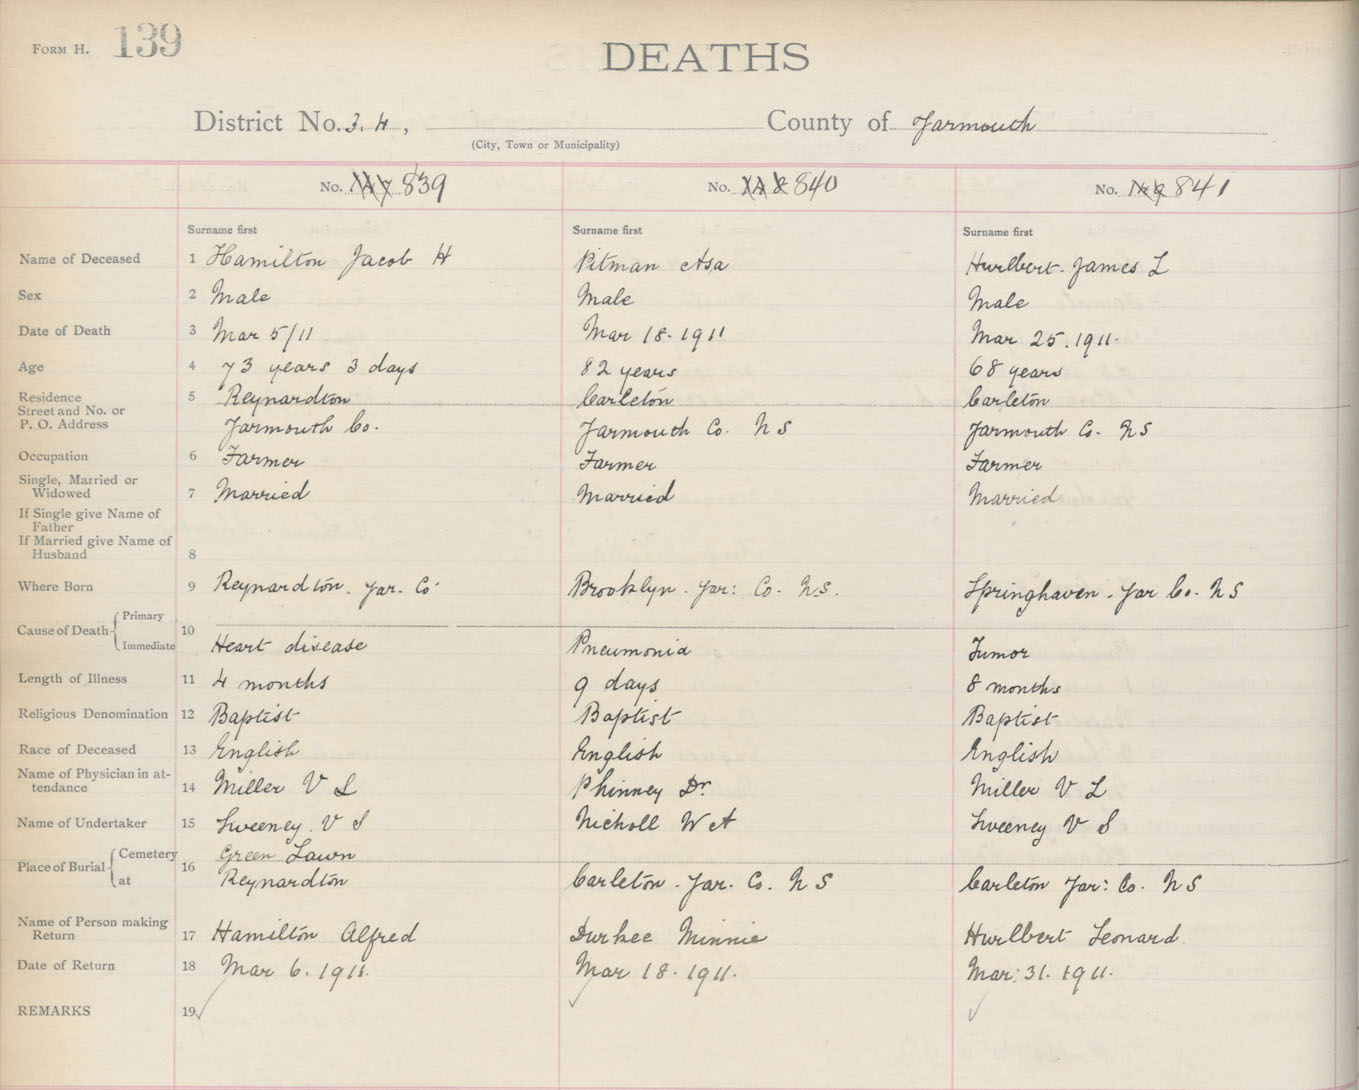 FORM H. 139
DEATHS
District No. 3.4, County of Yarmouth
(City, Town or Municipality)
No. 147 839 No. 148 840 No. 149 841
Surname first Surname first Surname first
Name of Deceased 1 Hamilton Jacob H Pitman Asa Hurlbert. James L
Sex 2 Male Male Male
Date of Death 3 Mar 5/11 Mar 18. 1911 Mar 25. 1911.
Age 4 73 years 3 days 82 years 68 years
Residence 5 Reynardton Carleton Carleton
Street and No. or
P. O. Address Yarmouth Co. Yarmouth Co. NS Yarmouth Co. NS
Occupation 6 Farmer Farmer Farmer
Single, Married or
Widowed 7 Married Married Married
If Single give Name of
Father
If Married give Name of
Husband 8
Where Born 9 Reynardton. Yar. Co Brooklyn. Yar: Co. N.S. Springhaven. Yar Co. NS
Cause of Death Primary 10
Immediate Heart disease Pneumonia Tumor
Length of Illness 11 4 months 9 days 8 months
Religious Denomination 12 Baptist Baptist Baptist
Race of Deceased 13 English English English
Name of Physician in at-
tendance 14 Miller V L Phinney Dr. Miller V L
Name of Undertaker 15 Sweeney. V S Nicholl W A Sweeney V S
Place of Burial Cemetery 16 Green Lawn
at Reynardton Carleton. Yar. Co. NS Carleton Yar: Co. NS
Name of Person making
Return 17 Hamilton Alfred Durkee Minnie Hurlbert Leonard
Date of Return 18 Mar 6. 1911. Mar 18. 1911. Mar: 31. 1911.
REMARKS 19